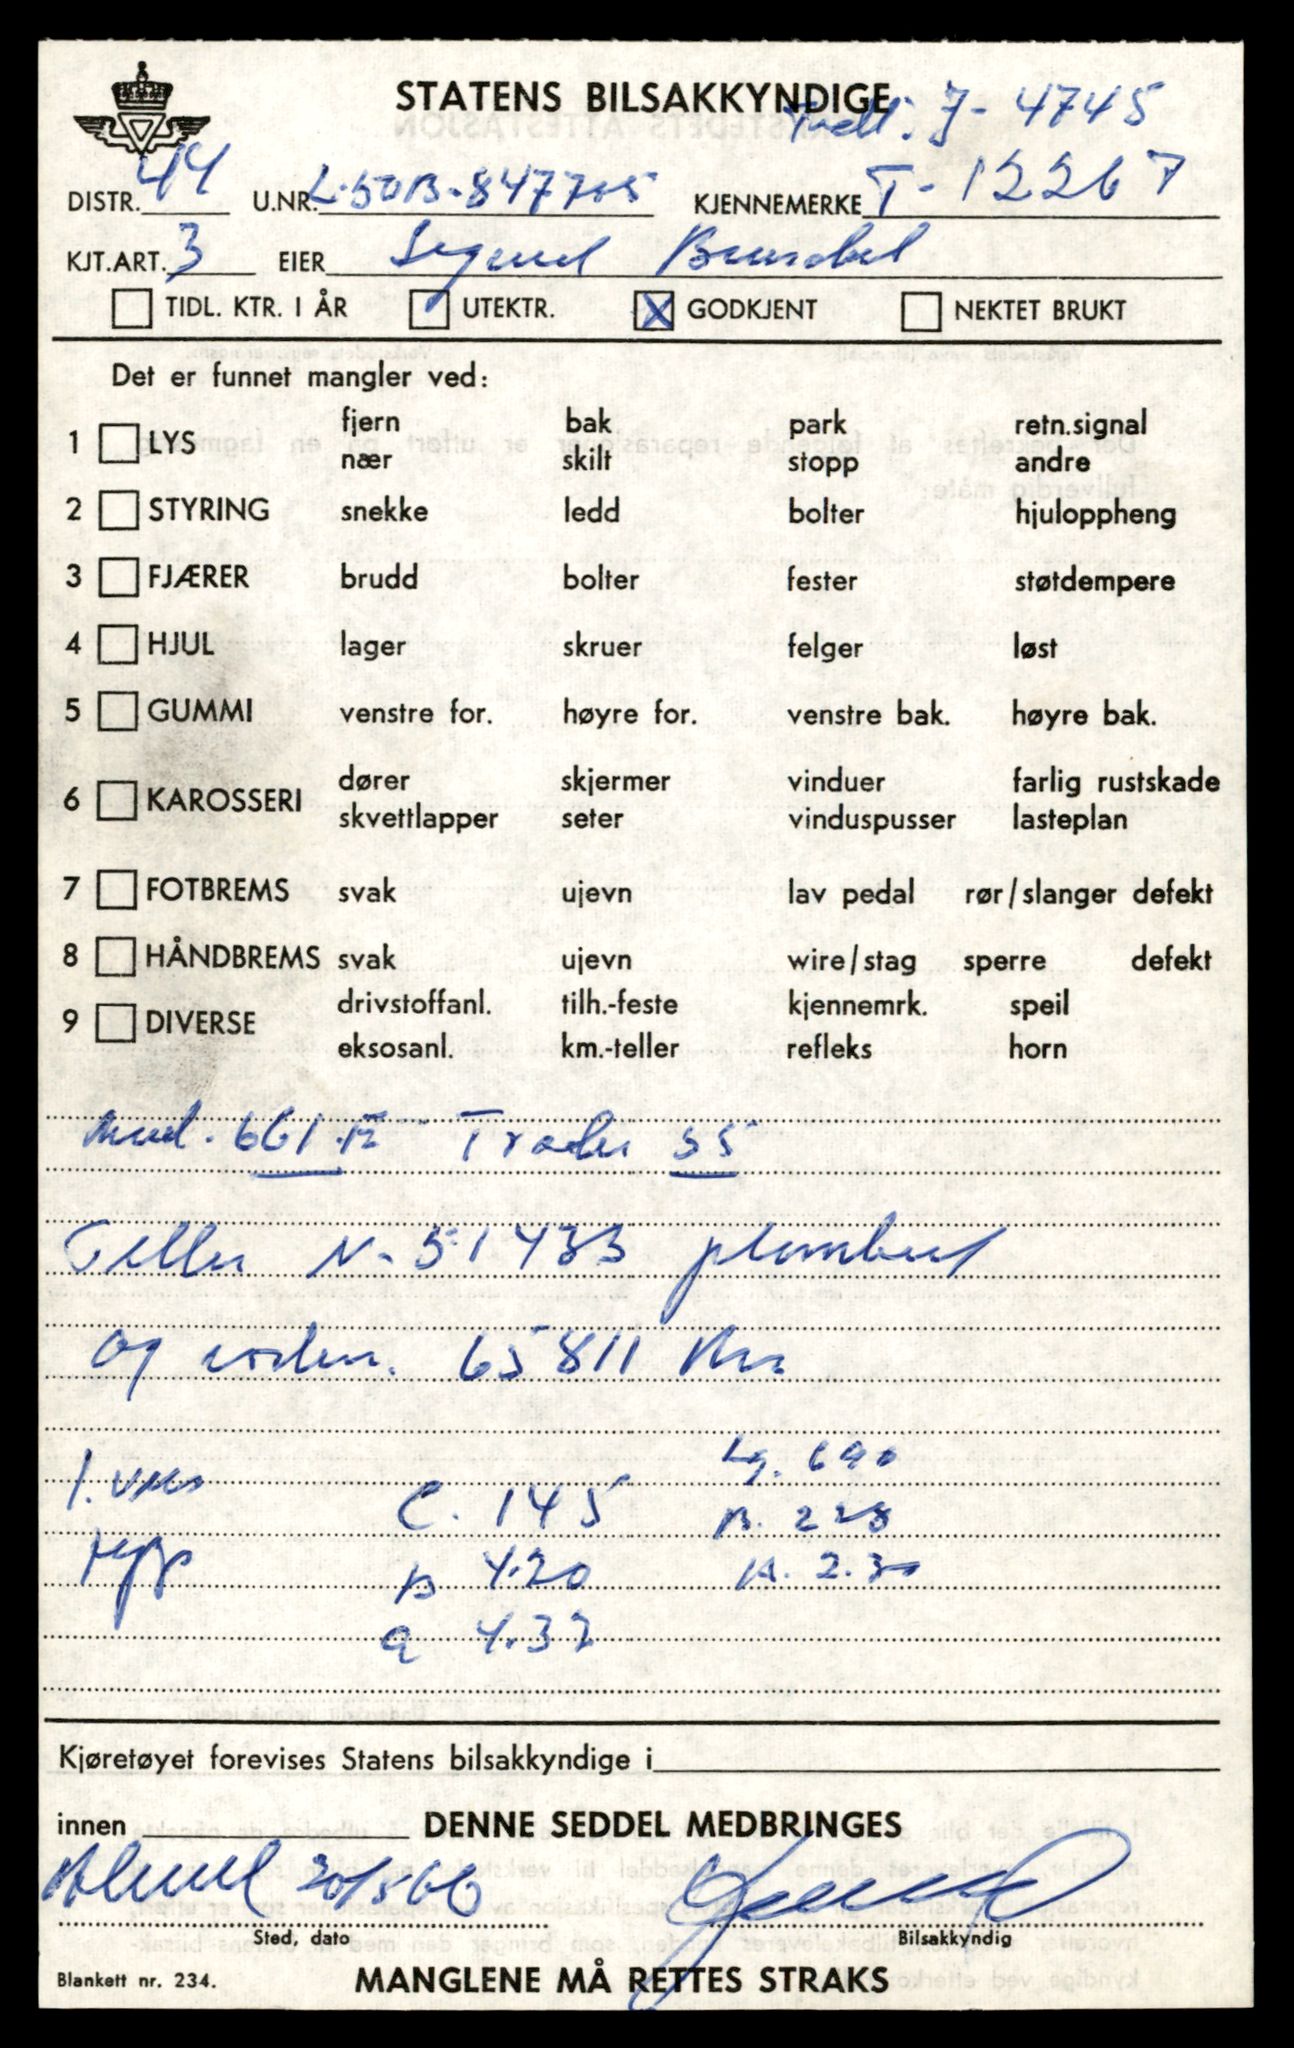 STATENS BILSAKKYNDIGE
J-4745
DISTR. 44 U.NR. L.50B-847705 KJENNEMERKE T-12267
KJT.ART. 3 EIER
TIDL. KTR. I ÅR UTEKTR. X GODKJENT NEKTET BRUKT
Det er funnet mangler ved:
1 LYS fjern bak park retn.signal
nær skilt stopp andre
2 STYRING snekke ledd bolter hjuloppheng
3 FJÆRER brudd bolter fester støtdempere
4 HJUL lager skruer felger løst
5 GUMMI venstre for. høyre for. venstre bak. høyre bak.
6 KAROSSERI dører skjermer vinduer farlig rustskade
skvettlapper seter vinduspusser lasteplan
7 FOTBREMS svak ujevn lav pedal rør/slanger defekt
8 HÅNDBREMS svak ujevn wire/stag sperre defekt
9 DIVERSE drivstoffanl. tilh.-feste kjennemrk. speil
eksosanl. km.-teller refleks horn
Mod. 661.E Trader 55
Teller N- 51433 plombert
og viser. 65811 Km
Lg. 690
C. 145
B. 228
B 4.20
H. 2.30
a 4.32
Kjøretøyet forevises Statens bilsakkyndige i
innen DENNE SEDDEL MEDBRINGES
20/5 66
Sted, dato Bilsakkyndig
Blankett nr. 234. MANGLENE MÅ RETTES STRAKS